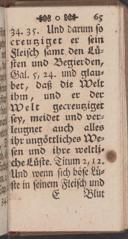 o 65
34. 35. Und darum so
creuziget er sein
Fleisch samt den Lü-
sten und Begierden,
Gal. 5, 24. und glau-
bet, daß die Welt
ihm, und er der
Welt gecreuziget
sey, meidet und ver-
leugnet auch alles
ihr ungöttliches We-
sen und ihre weltli-
che Lüste. Titum 2, 12.
Und wenn sich böse Lü-
ste in seinem Fleisch und
E Blut